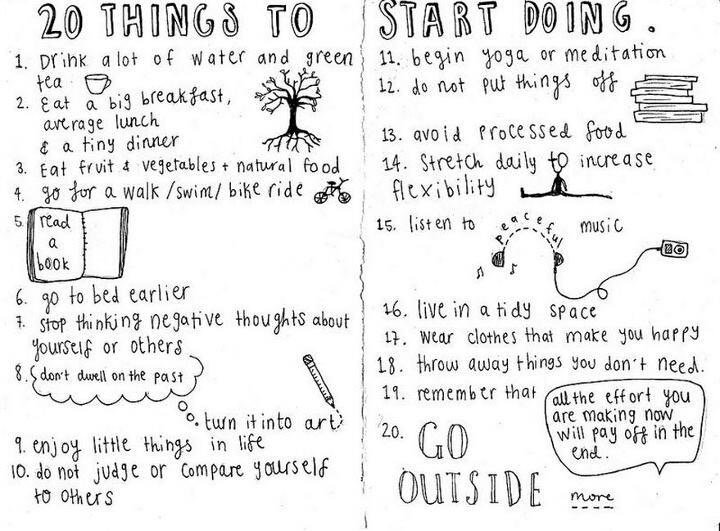 20 THINGS TO START DOING.
1. Drink a lot of water and green
tea
2. Eat a big breakfast,
average lunch
& a tiny dinner
3. Eat fruit & vegetables + natural food
4. go for a walk / swim / bike ride
5. read
a
book
6. go to bed earlier
7. stop thinking negative thoughts about
yourself or others
8. don't dwell on the past
turn it into art
9. enjoy little things in life
10. do not judge or compare yourself
to others
11. begin yoga or meditation
12. do not put things off
13. avoid processed food
14. Stretch daily to increase
flexibility
15. listen to peaceful music
16. live in a tidy space
17. wear clothes that make you happy
18. throw away things you don't need.
19. remember that
all the effort you
are making now
will pay off in the
end.
20. GO
OUTSIDE more